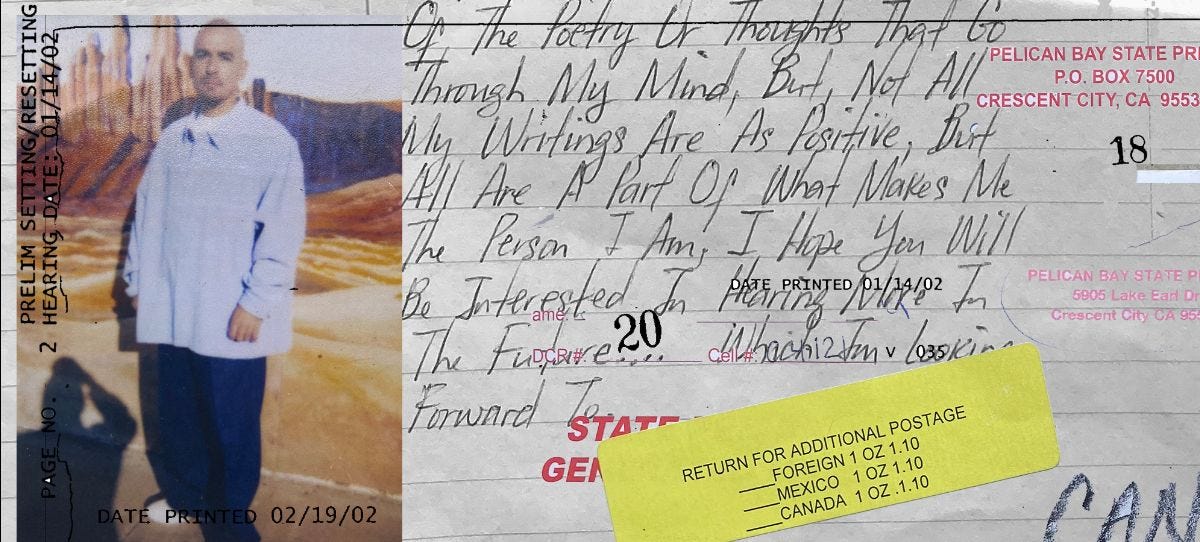 PRELIM SETTING/RESETTING
HEARING DATE: 01/14/02
PAGE NO. 2
DATE PRINTED 02/19/02
Of The Poetry Or Thoughts That Go
Through My Mind, But, Not All
My Writings Are As Positive, But
All Are A Part Of What Makes Me
The Person I Am, I Hope You Will
Be Interested In Hearing More In
The Future.... Which I'm Looking
Forward To.
PELICAN BAY STATE PRI
P.O. BOX 7500
CRESCENT CITY, CA 9553
18
DATE PRINTED 01/14/02
PELICAN BAY STATE P
5905 Lake Earl Dr
Crescent City CA 955
ame
20
DCR#
Cell#
v 035
STATE
GEN
RETURN FOR ADDITIONAL POSTAGE
FOREIGN 1 OZ 1.10
MEXICO 1 OZ 1.10
CANADA 1 OZ .1.10
CAN